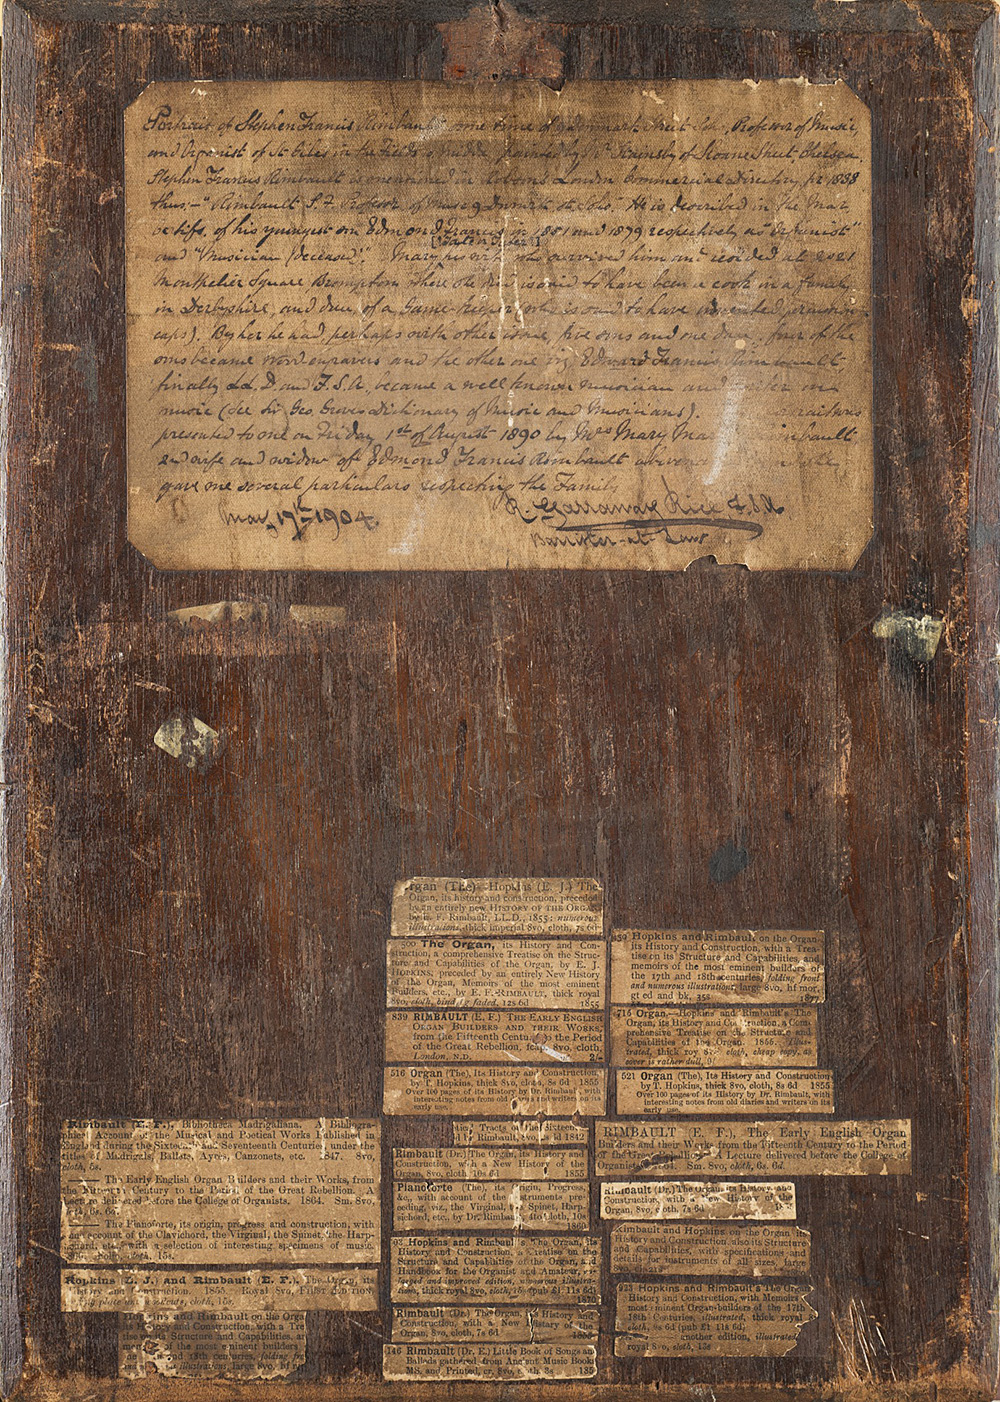 Portrait of Stephen Francis Rimbault some time of Denmark Street Soho, Professor of Music,
and Organist of St Giles in the Fields painted by Mr Hainsby of Sloane Street, Chelsea.
Stephen Francis Rimbault is mentioned in Robson's London Commercial Directory for 1838
thus:- "Rimbault S. F. Professor of Music 9 Denmark St. Soho." He is described in the Mar.
certifs. of his youngest son Edmond Francis in 1881 and 1899 respectively as "Organist"
and "Musician (deceased)." Mary his wife who survived him and resided at
Montpelier Square Brompton where she died is said to have been a cook in a family
in Derbyshire, and dau. of a Game-keeper (who is said to have invented percussion
caps). By her he had, perhaps with other issue, five sons and one dau., four of the
sons became wood engravers and the other one viz. Edward Francis Rimbault,
finally LL.D. and F.S.A., became a well known musician and writer on
music (see Sir Geo. Groves Dictionary of Music and Musicians). portrait was
presented to me on Friday, 1st of August 1890 by Mrs Mary Rimbault
2nd wife and widow of Edmond Francis Rimbault
gave me several particulars respecting the Family
May 19th 1904.
R. Garraway Rice F.S.A
Barrister-at-Law
rgan (The)—Hopkins (E. J.) The
Organ, its history and construction, preceded
by an entirely new HISTORY OF THE ORGAN
by E. F. Rimbault, LL.D., 1855: numerous
illustrations, thick imperial 8vo, cloth, 7s 6d
500 The Organ, its History and Con-
struction, a comprehensive Treatise on the Struc-
ture and Capabilities of the Organ, by E. J.
HOPKINS, preceded by an entirely New History
of the Organ, Memoirs of the most eminent
Builders, etc., by E. F. RIMBAULT, thick royal
8vo, cloth, binding faded, 12s 6d 1855
839 RIMBAULT (E. F.) THE EARLY ENGLISH
ORGAN BUILDERS AND THEIR WORKS,
from the Fifteenth Century to the Period
of the Great Rebellion, fcap. 8vo, cloth,
London, N.D. 2/-
516 Organ (The), Its History and Construction,
by T. Hopkins, thick 8vo, cloth, 8s 6d 1855
Over 100 pages of its History by Dr. Rimbault, with
interesting notes from old diaries and writers on its
early use.
Hopkins and Rimbault on the Organ
its History and Construction, with a Trea-
tise on its Structure and Capabilities, and
memoirs of the most eminent builders of
the 17th and 18th centuries, folding front
and numerous illustrations, large 8vo, hf mor,
gt ed and bk, 35s 1877
716 Organ.—Hopkins and Rimbault's The
Organ, its History and Construction, a Com-
prehensive Treatise on the Structure and
Capabilities of the Organ. 1855. Illus-
trated, thick roy 8vo, cloth, cheap copy, as
cover is rather dull,
521 Organ (The), Its History and Construction
by T. Hopkins, thick 8vo, cloth, 8s 6d 1855
Over 100 pages of its History by Dr. Rimbault, with
interesting notes from old diaries and writers on its
early use.
Rimbault (E. F.), Bibliotheca Madrigaliana. A Bibliogra-
phical Account of the Musical and Poetical Works Published in
England during the Sixteenth and Seventeenth Centuries, under the
titles of Madrigals, Ballets, Ayres, Canzonets, etc. 1847. 8vo,
cloth, 5s.
—— The Early English Organ Builders and their Works, from
the Fifteenth Century to the Period of the Great Rebellion. A
Lecture delivered before the College of Organists. 1864. Sm. 8vo,
cloth, 6s. 6d.
—— The Pianoforte, its origin, progress and construction, with
an account of the Clavichord, the Virginal, the Spinet, the Harp-
sichord, etc., with a selection of interesting specimens of music
cloth, 15s.
Hopkins (E. J.) and Rimbault (E. F.), The Organ, its
History and Construction. 1855. Royal 8vo, FIRST EDITION,
cloth, 15s.
Hopkins and Rimbault on the Orga
its History and Construction, with a Tre
tise on its Structure and Capabilities, an
memoirs of the most eminent builders
and 18th centuries, folding fr
illustrations, large 8vo, hf m
Tracts of the Sixteen
by Rimbault, 8vo, 1842
Rimbault (Dr.) The Organ, its History and
Construction, with a New History of the
Organ, 8vo, cloth, 10s 6d 1855
Pianoforte (The), its Origin, Progress,
&c., with account of the Instruments pre-
ceding, viz., the Virginal, the Spinet, Harp-
sichord, etc., by Dr. Rimbault, 4to, cloth, 10s
1860
Hopkins and Rimbault's The Organ, its
History and Construction, a Treatise on the
Structure and Capabilities of the Organ, and
Handbook for the Organist and Amateur, en-
larged and improved edition, numerous illustra-
tions, thick royal 8vo, cloth, (pub £1 11s 6d)
Rimbault (Dr.) The Organ, its History and
Construction, with a New History of the
Organ, 8vo, cloth, 7s 6d
146 Rimbault (Dr. E.) Little Book of Songs and
Ballads gathered from Ancient Music Books
MS. and Printed, cr. 8vo, cloth, 3s
RIMBAULT (E. F.), The Early English Organ
Builders and their Works from the Fifteenth Century to the Period
of the Great Rebellion. A Lecture delivered before the College of
Organists. Sm. 8vo, cloth, 6s. 6d.
Rimbault (Dr.) The Organ, its History and
Construction, with a New History of the
Organ, 8vo, cloth, 7s 6d
Rimbault and Hopkins on the Organ, its
History and Construction with its Structure
and Capabilities, with specifications and
details for instruments of all sizes, large
923 Hopkins and Rimbault's The Organ
History and Construction, with Memoirs
most eminent Organ-builders of the 17th
18th Centuries, illustrated, thick royal
cloth, 8s 6d (pub £1 11s 6d)
another edition, illustrated
royal 8vo, cloth, 15s